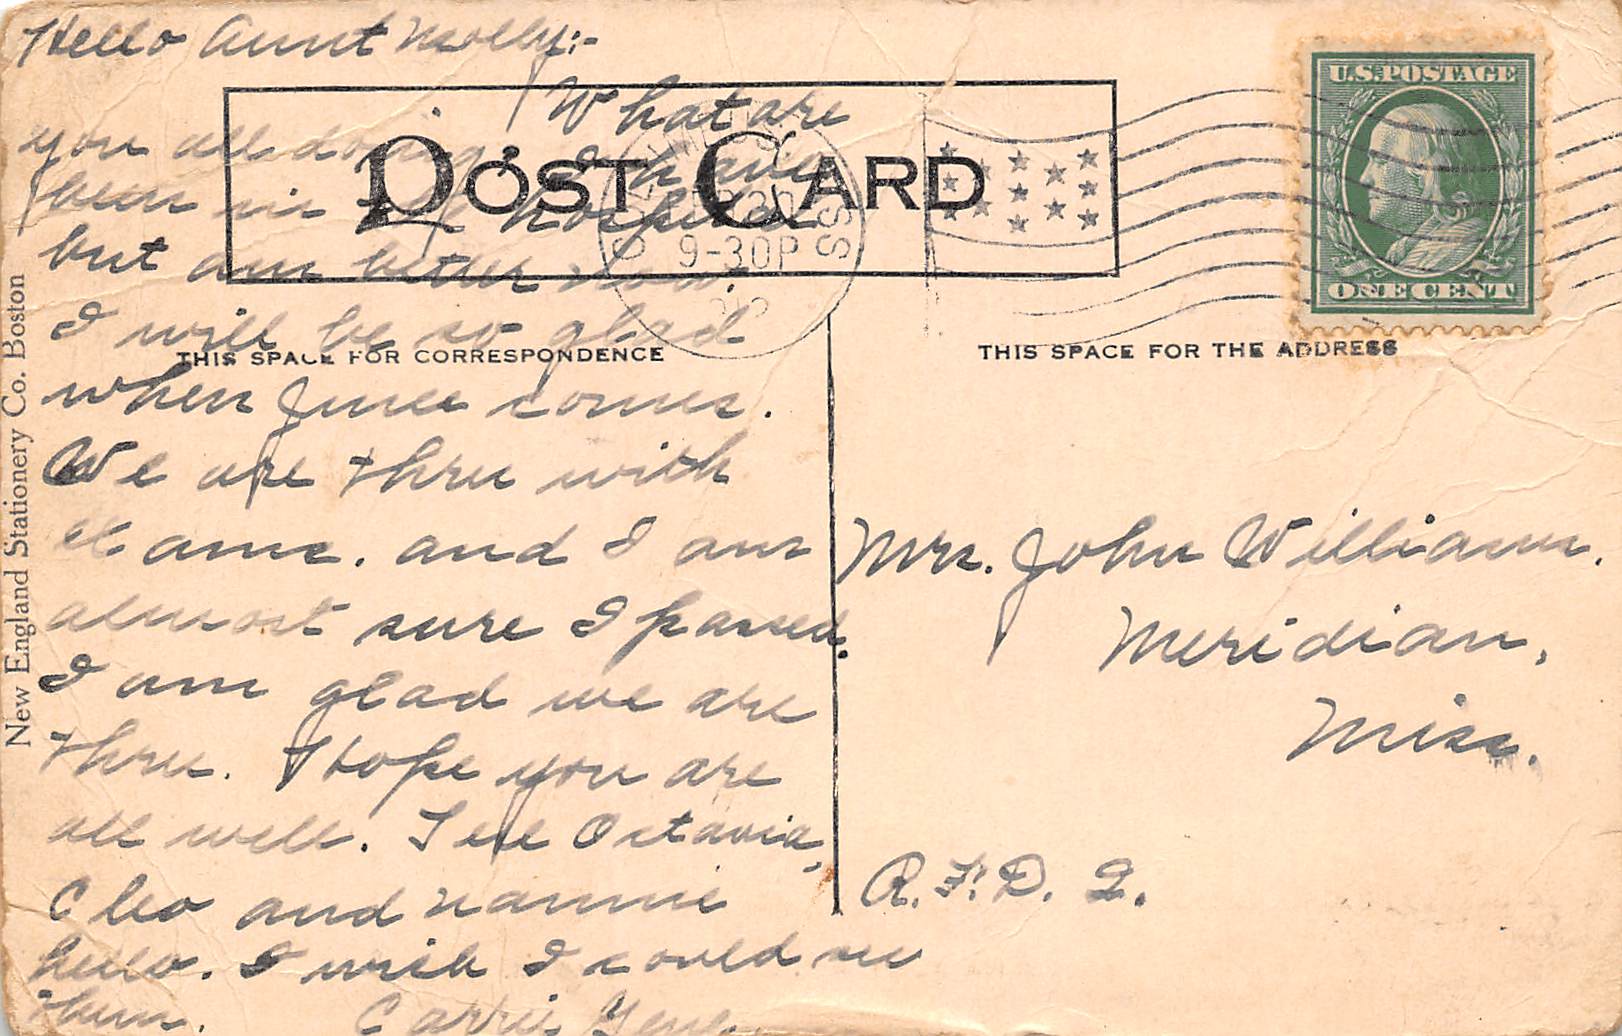 Hello Aunt Molly:-
What are
you all doing. I have
been in the hospital
but am better now.
I will be so glad
when June comes.
We are thru with
exams. and I am
almost sure I passed.
I am glad we are
thru. I hope you are
all well. Tell Octavia,
Cleo and Nannie
hello. I wish I could see
them. Carrie Gene.
POST CARD
THIS SPACE FOR CORRESPONDENCE
THIS SPACE FOR THE ADDRESS
New England Stationery Co. Boston
9-30P
MISS
U.S. POSTAGE
ONE CENT
Mrs. John Williams.
Meridian,
Miss.
R.F.D. 2.